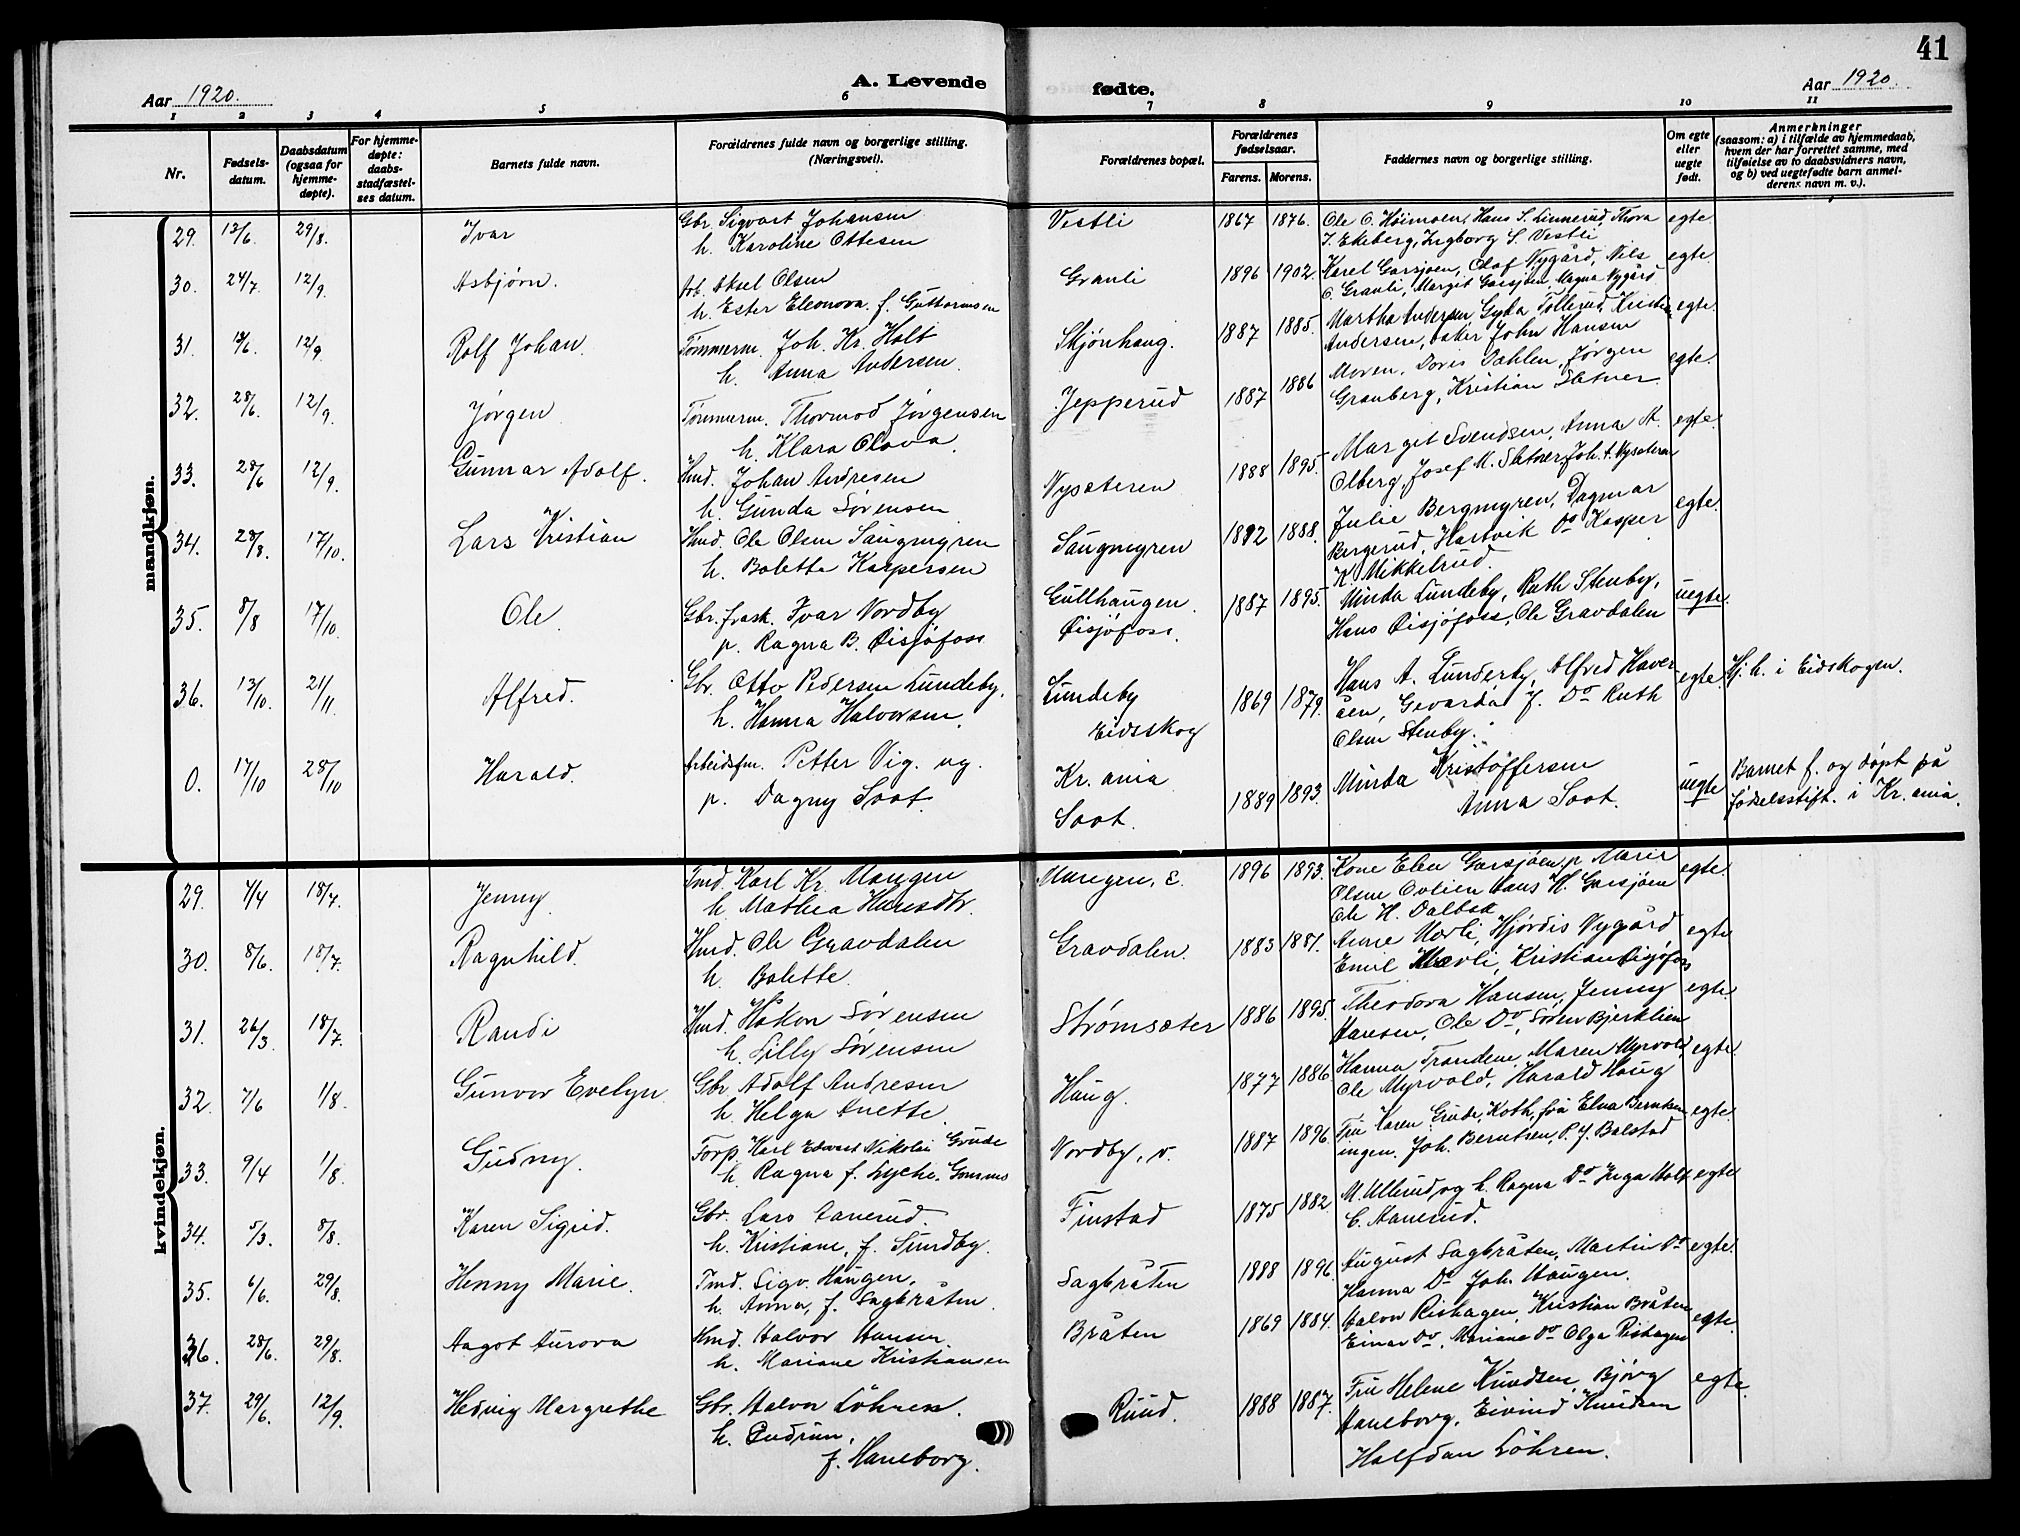 41
Aar 1920.
A. Levende fødte.
Aar 1920.
1 2 3 4 5 6 7 8 9 10 11
Nr.
Fødsels-datum.
Daabsdatum (ogsaa for hjemme-døpte).
For hjemme-døpte: daabs-stadfæstel-ses datum.
Barnets fulde navn.
Forældrenes fulde navn og borgerlige stilling. (Næringsvei).
Forældrenes bopæl.
Forældrenes fødselsaar.
Farens. Morens.
Faddernes navn og borgerlige stilling.
Om egte eller uegte født.
Anmerkninger
(saasom: a) i tilfælde av hjemmedaab, hvem der har forrettet samme, med tilføielse av to daabsvidners navn, og b) ved uegtefødte barn anmel-derens navn m. v.).
mandkjøn.
29. 13/6 29/8. Ivar Gbr. Sigvart Johansen Vestli 1867 1876. Ole O. Høimoen, Hans S. Linnerud, Thora egte.
h. Karoline Ottesen J. Ekeberg, Ingborg S. Vestli
30. 24/7 12/9. Asbjørn. Arb. Aksel Olsen Granli 1896 1902. Karel Garsjøen, Olaf Nygård, Nils egte.
h. Ester Eleonora f. Guttormsen O. Granli, Margit Garsjøen, Magna Nygård
31. 12/9 Rolf Johan. Tømmerm. Joh. Kr. Holt Skjønhaug. 1887 1885. Martha Andersen Gyda Tollerud, egte.
h. Anna Andersen. Andersen, John Hansen
32. 28/6. 12/9. Jørgen Tømmerm. Thormod Jørgensen Jepperud 1887 1886 Moren, Doris Dahlen, Jørgen egte.
h. Klara Olava. Granberg, Kristian Slatner.
33. 28/6 12/9. Gunnar Adolf. Hmd. Johan Andresen Nysæteren 1888 1895. Margit Svendsen, Anna A. egte.
h. Gunda Sørensen Olberg, Josef M. Slatner, Joh. A. Nysæteren
34. 28/8. 17/10. Lars Kristian Hmd. Ole Olsen Saugmyren Saugmyren 1888. Julie Bergmyren, Dagmar egte.
h. Bolette Kaspersen Bergerud, Hartvik Do Kasper
K. Mikkelrud.
35. 8/8 17/10. Ole Gbr. frask. Ivar Nordby Gullhaugen. 1887 1895. Minda Lundeby, Ruth Stenby, uegte.
p. Ragna B. Øisjøfoss Øisjøfoss. Hans Øisjøfoss, Ole Gravdalen
36. 13/10. 21/11. Alfred. Gbr. Otto Pedersen Lundeby. Lundeby 1869 1879. Hans A. Lunderby, Alfred Haver- egte. Hj. h. i Eidskogen.
h. Hanna Halvorsen. Eidsskog åen, Gevarda J. Do Ruth
Olsen Stenby.
0. 17/10 28/10 Harald. Arbeidsfm. Petter Vig. ug. Kr. ania 1889 1893. Minda Kristoffersen uegte Barnet f. og døpt på
p. Dagny Soot. Soot. Anna Soot. fødselsstift. i Kr. ania.
kvindekjøn.
29. 7/4 18/7. Jenny. Tmd. Karl Kr. Mangen Mangen, E. 1896 1893. Kone Elen Garsjøen, p. Marie egte.
h. Mathea Hansdtr. Olsen Hans H. Garsjøen
Ole H. Dalbak
30. 8/6. 18/7. Ragnhild. Hmd. Ole Gravdalen Gravdalen. 1883 1881. Anne Hovli, Hjørdis Nygård egte
h. Bolette. Emil Hovli, Kristian Øisjøfoss
31. 26/3 18/7. Randi Hmd. Håkon Sørensen Strømsæter 1886 1895. Theodora Hansen, Jenny egte.
h. Lilly Sørensen Hansen, Ole Do, Søren Bjerklien
32. 7/6 1/8. Gunvor Evelyn Gbr. Adolf Andresen Haug. 1877 1886 Hanna Trandem, Maren Myrvold, egte.
h. Helga Anette. Ole Myrvold, Harald Haug
33. 9/4 1/8. Gudny. Forp. Karl Edvard Nikolai Grude Nordby, v. 1887 1896. Fru Karen Grude, Koth, fru Elna Berntsen egte.
h. Ragna f. Lyche ingen. Joh. Berntsen, P. J. Balstad
34. 5/3. 8/8. Karen Sigrid. Gbr. Lars Aanerud. Finstad 1875 1882. M. Ullerud og h. Ragna Do Inga Holt egte
h. Kristiane, f. Sundby. C. Aanerud.
35. 6/6. 29/8. Henny Marie. Tmd. Sigv. Haugen. Sagbråten 1888 1896. August Sagbråten, Martin Do egte.
h. Anna, f. Sagbråten. Hanna Do Joh. Haugen.
36. 28/6. 29/8. Aagot Aurora Hmd. Halvor Hansen Bråten 1869 1884. Halvor Rishagen, Kristian Bråten egte.
h. Mariane Kristiansen Einar Do, Mariane Do Olga Rishagen
37. 29/6. 12/9. Hedvig Margrethe Gbr. Halvor Löhren. Ruud. 1888 1887. Fru Helene Knudsen, Bjørg egte.
h. Gudrun, Haneborg, Eivind Knudsen
f. Haneborg. Halfdan Löhren.